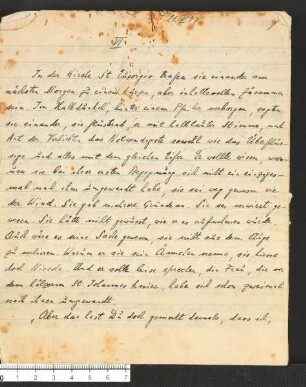 VI.
In der Kirche St. Eusorgio trafen sie einander am
nächsten Morgen zu einem kurzen, aber inhaltsvollen Zusammen
sein. Im Halbdunkel, hinter einem Pfeiler verborgen, sagten
sie einander, sie flüsternd, er mit halblauter Stimme, nach
Art der Verliebten das Notwendigste sowohl wie das Überflüs-
sige und alles mit dem gleichen Eifer. Er wollte wissen, war-
um sie bei ihrer ersten Begegnung sich nicht ein einziges-
mal nach ihm umgewandt habe, sie sei weg gewesen wie
der Wind. Sie gab mehrere Gründe an. Sie sei verwirrt ge-
wesen. Sie hätte nicht gewusst, wie er es aufnehmen würde.
Auch wäre es seine Sache gewesen, sie nicht aus dem Auge
zu verlieren. Warum er sie eine nenne, sie heisse
doch . Und er solle leise sprechen, die Frau, die vor
dem hölzernen St. Johannes kniee, habe sich schon zweimal
nach ihnen umgewandt.
„Aber das hast Du doch gemerkt damals, dass ich,